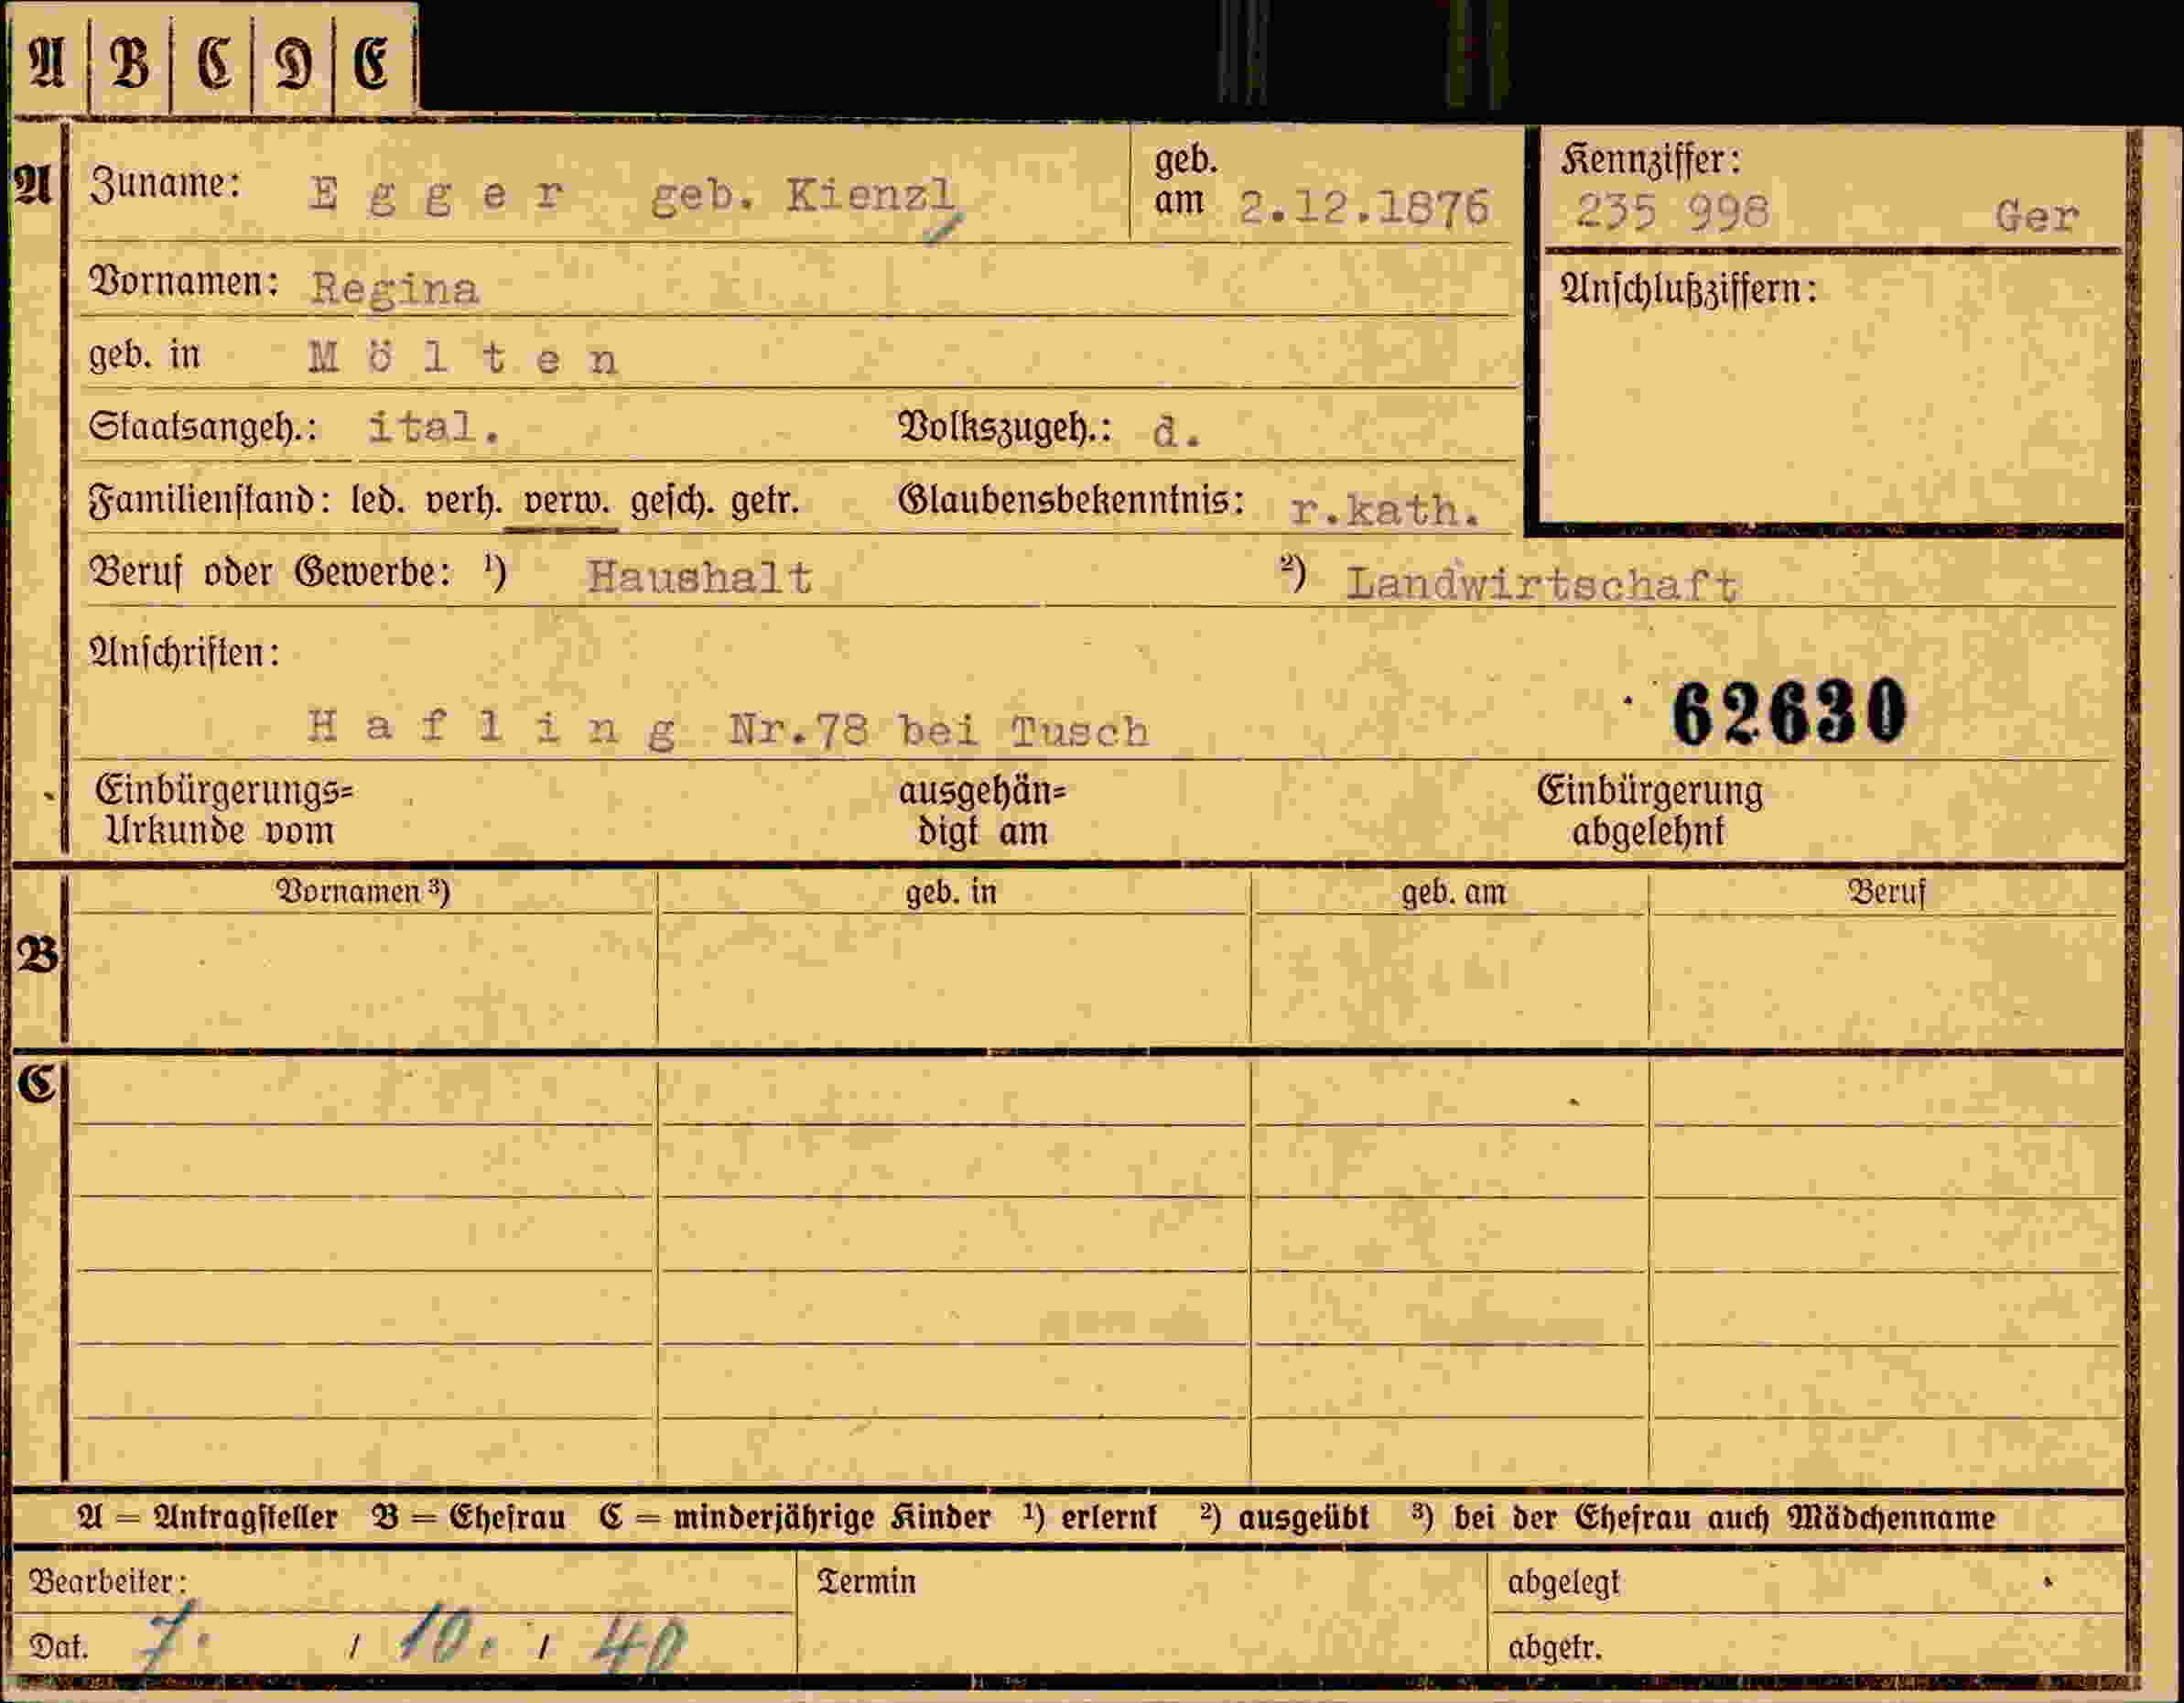 A B C D E
A Zuname: Egger geb. Kienzl geb. am 2.12.1876 Kennziffer: 235 998 Ger
Vornamen: Regina Anschlußziffern:
geb. in Mölten
Staatsangeh.: ital. Volkszugeh.: d.
Familienstand: led. verh. verw. gesch. getr. Glaubensbekenntnis: r.kath.
Beruf oder Gewerbe: ¹) Haushalt ²) Landwirtschaft
Anschriften:
Hafling Nr.78 bei Tusch 62630
Einbürgerungs= ausgehän= Einbürgerung
Urkunde vom digt am abgelehnt
Vornamen ³) geb. in geb. am Beruf
B
C
A = Antragsteller B = Ehefrau C = minderjährige Kinder ¹) erlernt ²) ausgeübt ³) bei der Ehefrau auch Mädchenname
Bearbeiter: Termin abgelegt
Dat. 7. / 10. / 40 abgetr.